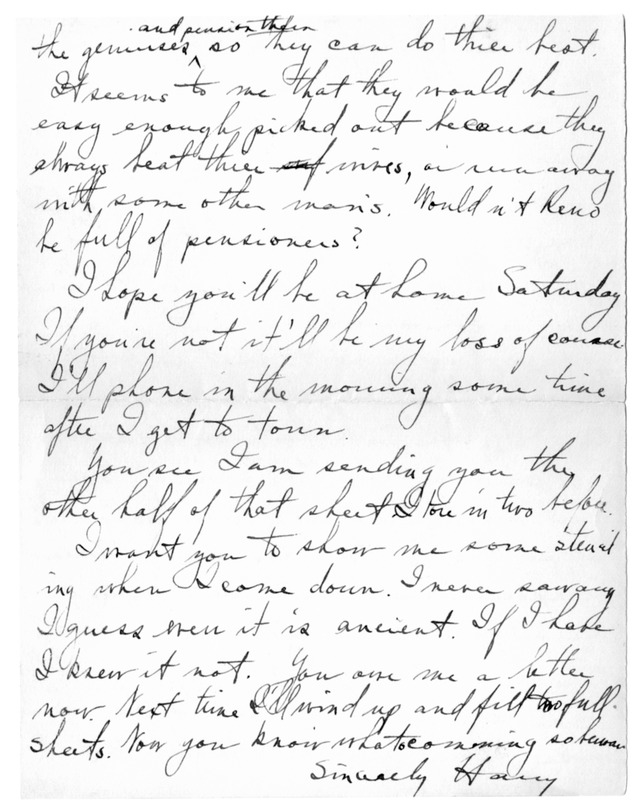 and pension them
the geniuses ^ so they can do thier best.
It seems to me that they would be
easy enough picked out because they
always beat thier wives, or run away
with some other man's. Would n't Reno
be full of pensioners?
I hope you'll be at home Saturday
If you're not it'll be my loss of course
I'll phone in the morning some time
after I get to town.
You see I am sending you the
other half of that sheet I tore in two before.
I want you to show me some stencil
ing when I come down. I never saw any
I guess even it is ancient. If I have
I knew it not. You owe me a letter
now. Next time I'll wind up and fill two full
sheets. Now you know whats comming so beware
Sincerely Harry